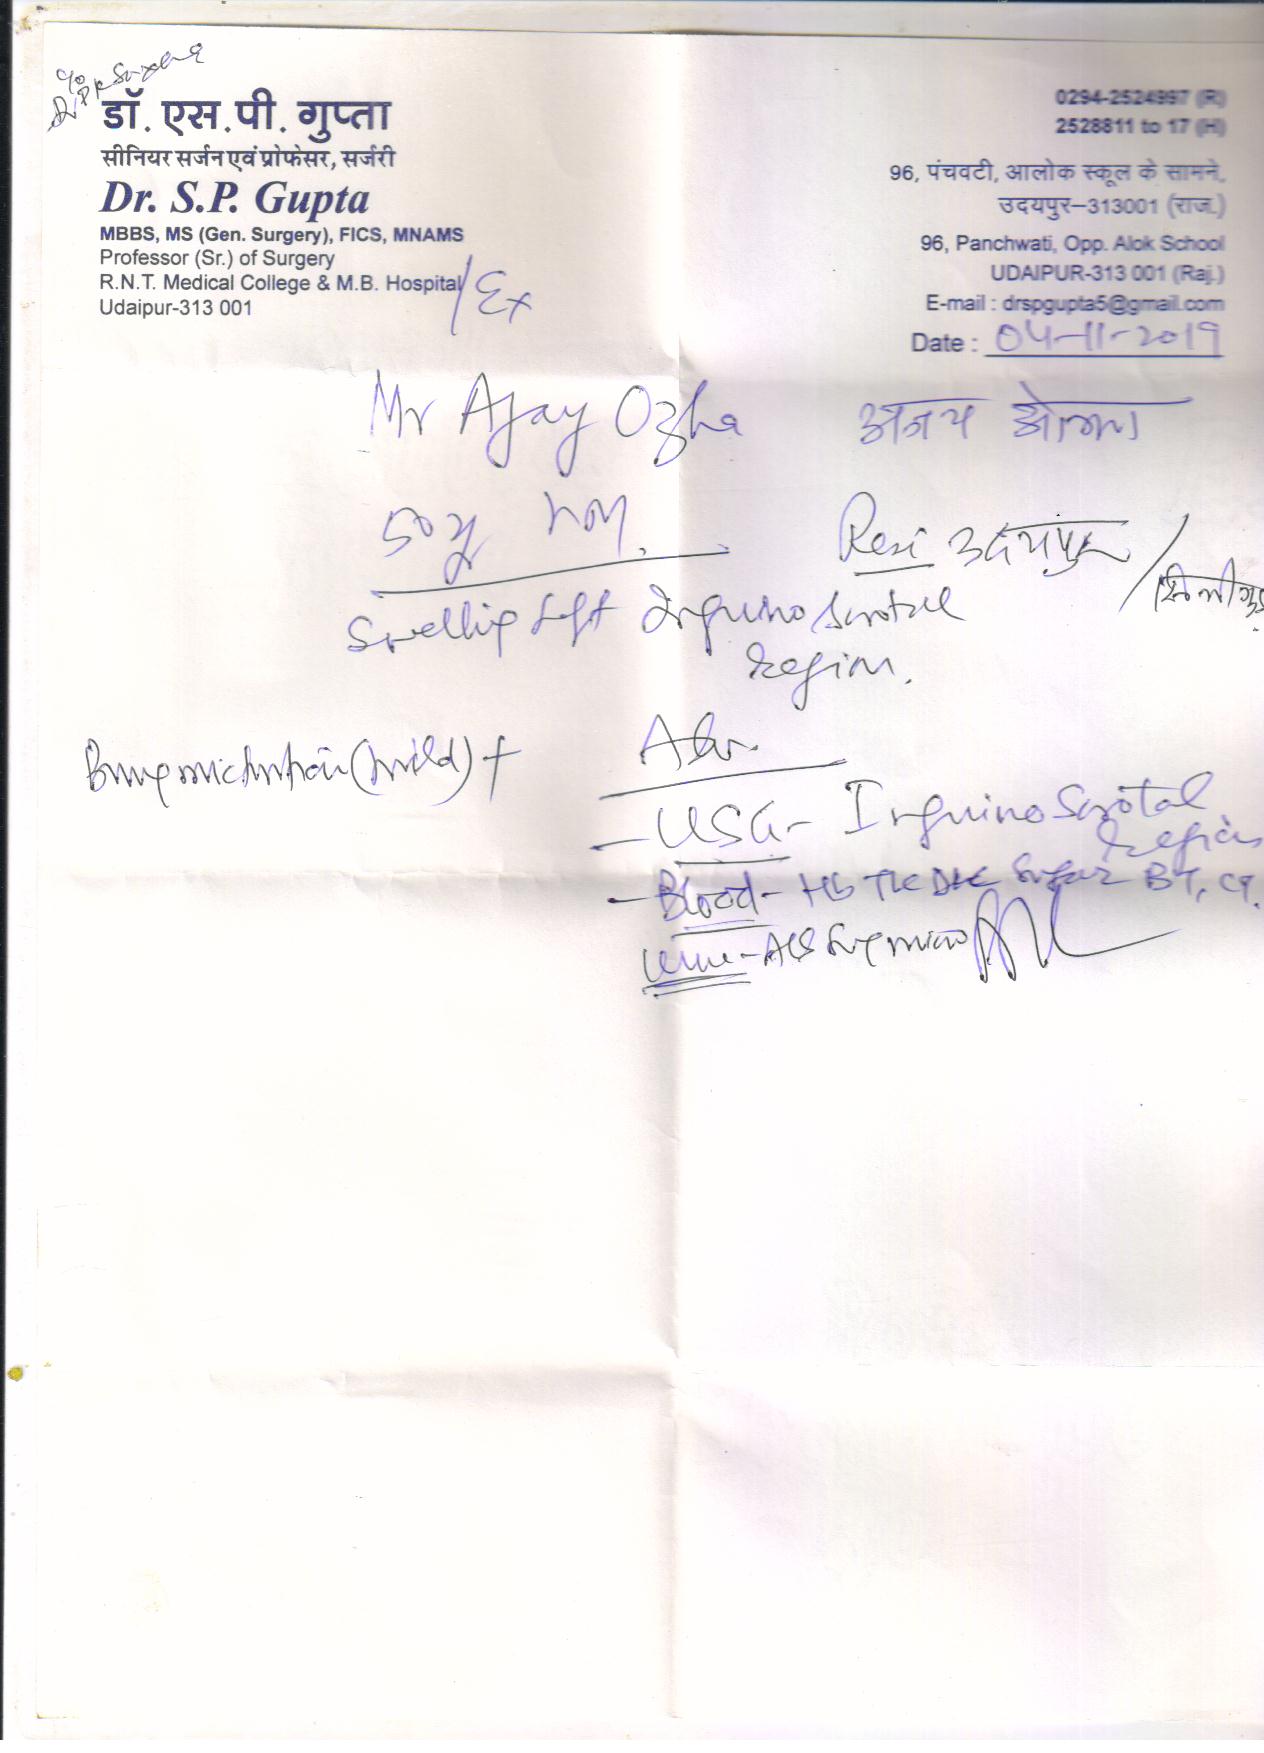 डॉ. एस.पी. गुप्ता
सीनियर सर्जन एवं प्रोफेसर, सर्जरी
Dr. S.P. Gupta
MBBS, MS (Gen. Surgery), FICS, MNAMS
Professor (Sr.) of Surgery
R.N.T. Medical College & M.B. Hospital/Ex
Udaipur-313 001
0294-2524997 (R)
2528811 to 17 (H)
96, पंचवटी, आलोक स्कूल के सामने,
उदयपुर–313001 (राज.)
96, Panchwati, Opp. Alok School
UDAIPUR-313 001 (Raj.)
E-mail : drspgupta5@gmail.com
Date : 04-11-2019
Mr Ajay Ozha अजय ओझा
50 y
Resi उदयपुर /
Swelling Left Inguino Scrotal
region.
micturition (mild) +
Adv.
- USG - Inguino Scrotal
region
- Blood - Hb TLC DLC Sugar BT, CT.
Urine - Alb Sug micro